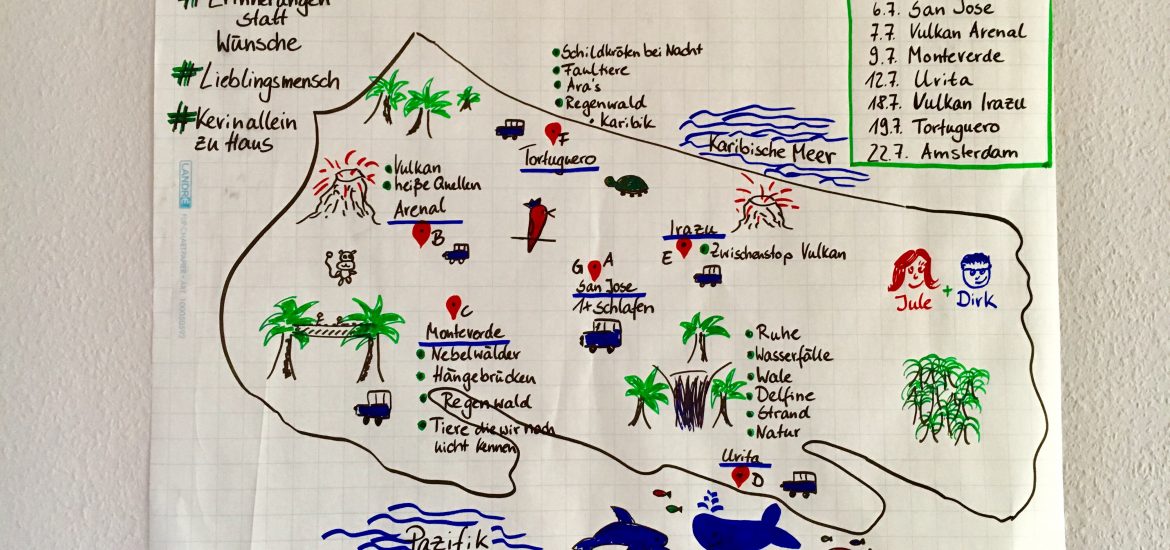 # Erinnerungen
statt
Wünsche
# Lieblingsmensch
# Kerinallein
zu Haus
LANDRÉ
6.7. San Jose
7.7. Vulkan Arenal
9.7. Monteverde
12.7. Uvita
18.7. Vulkan Irazu
19.7. Tortuguero
22.7. Amsterdam
Schildkröten bei Nacht
Faultiere
Ara's
Regenwald
Karibik
F
Tortuguero
Karibische Meer
Vulkan
heiße Quellen
Arenal
B
Irazu
E
Zwischenstop Vulkan
G A
San Jose
1x Schlafen
Jule + Dirk
C
Monteverde
Nebelwälder
Hängebrücken
Regenwald
Tiere die wir noch
nicht kennen
Ruhe
Wasserfälle
Wale
Delfine
Strand
Natur
Uvita
D
Pazifik